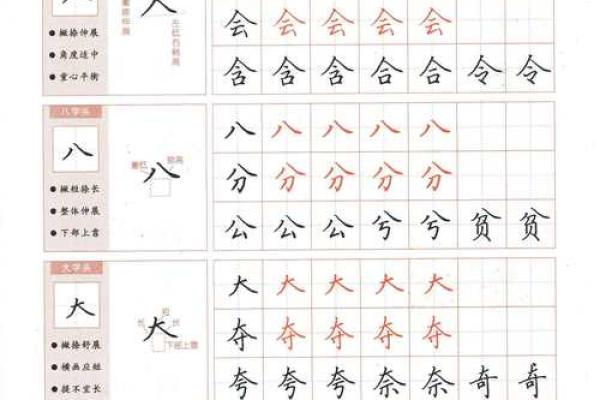 撇捺伸展
角度适中
重心平衡
左低右稍高
会 会 会 会 会
含 含 含 合 合 令 令
八字头
八
撇短捺长
整体伸展
下部上靠
八
八 八 八 八 八
分 分 分 分 分
公 公 公 兮 兮 贫 贫
大字头
大
撇捺舒展
横画应短
不宜长
短
长 长
大
下部上靠
大 大 大 大 大
夺 夺 夺 夺 夺
夸 夸 夸 奈 奈 奇 奇